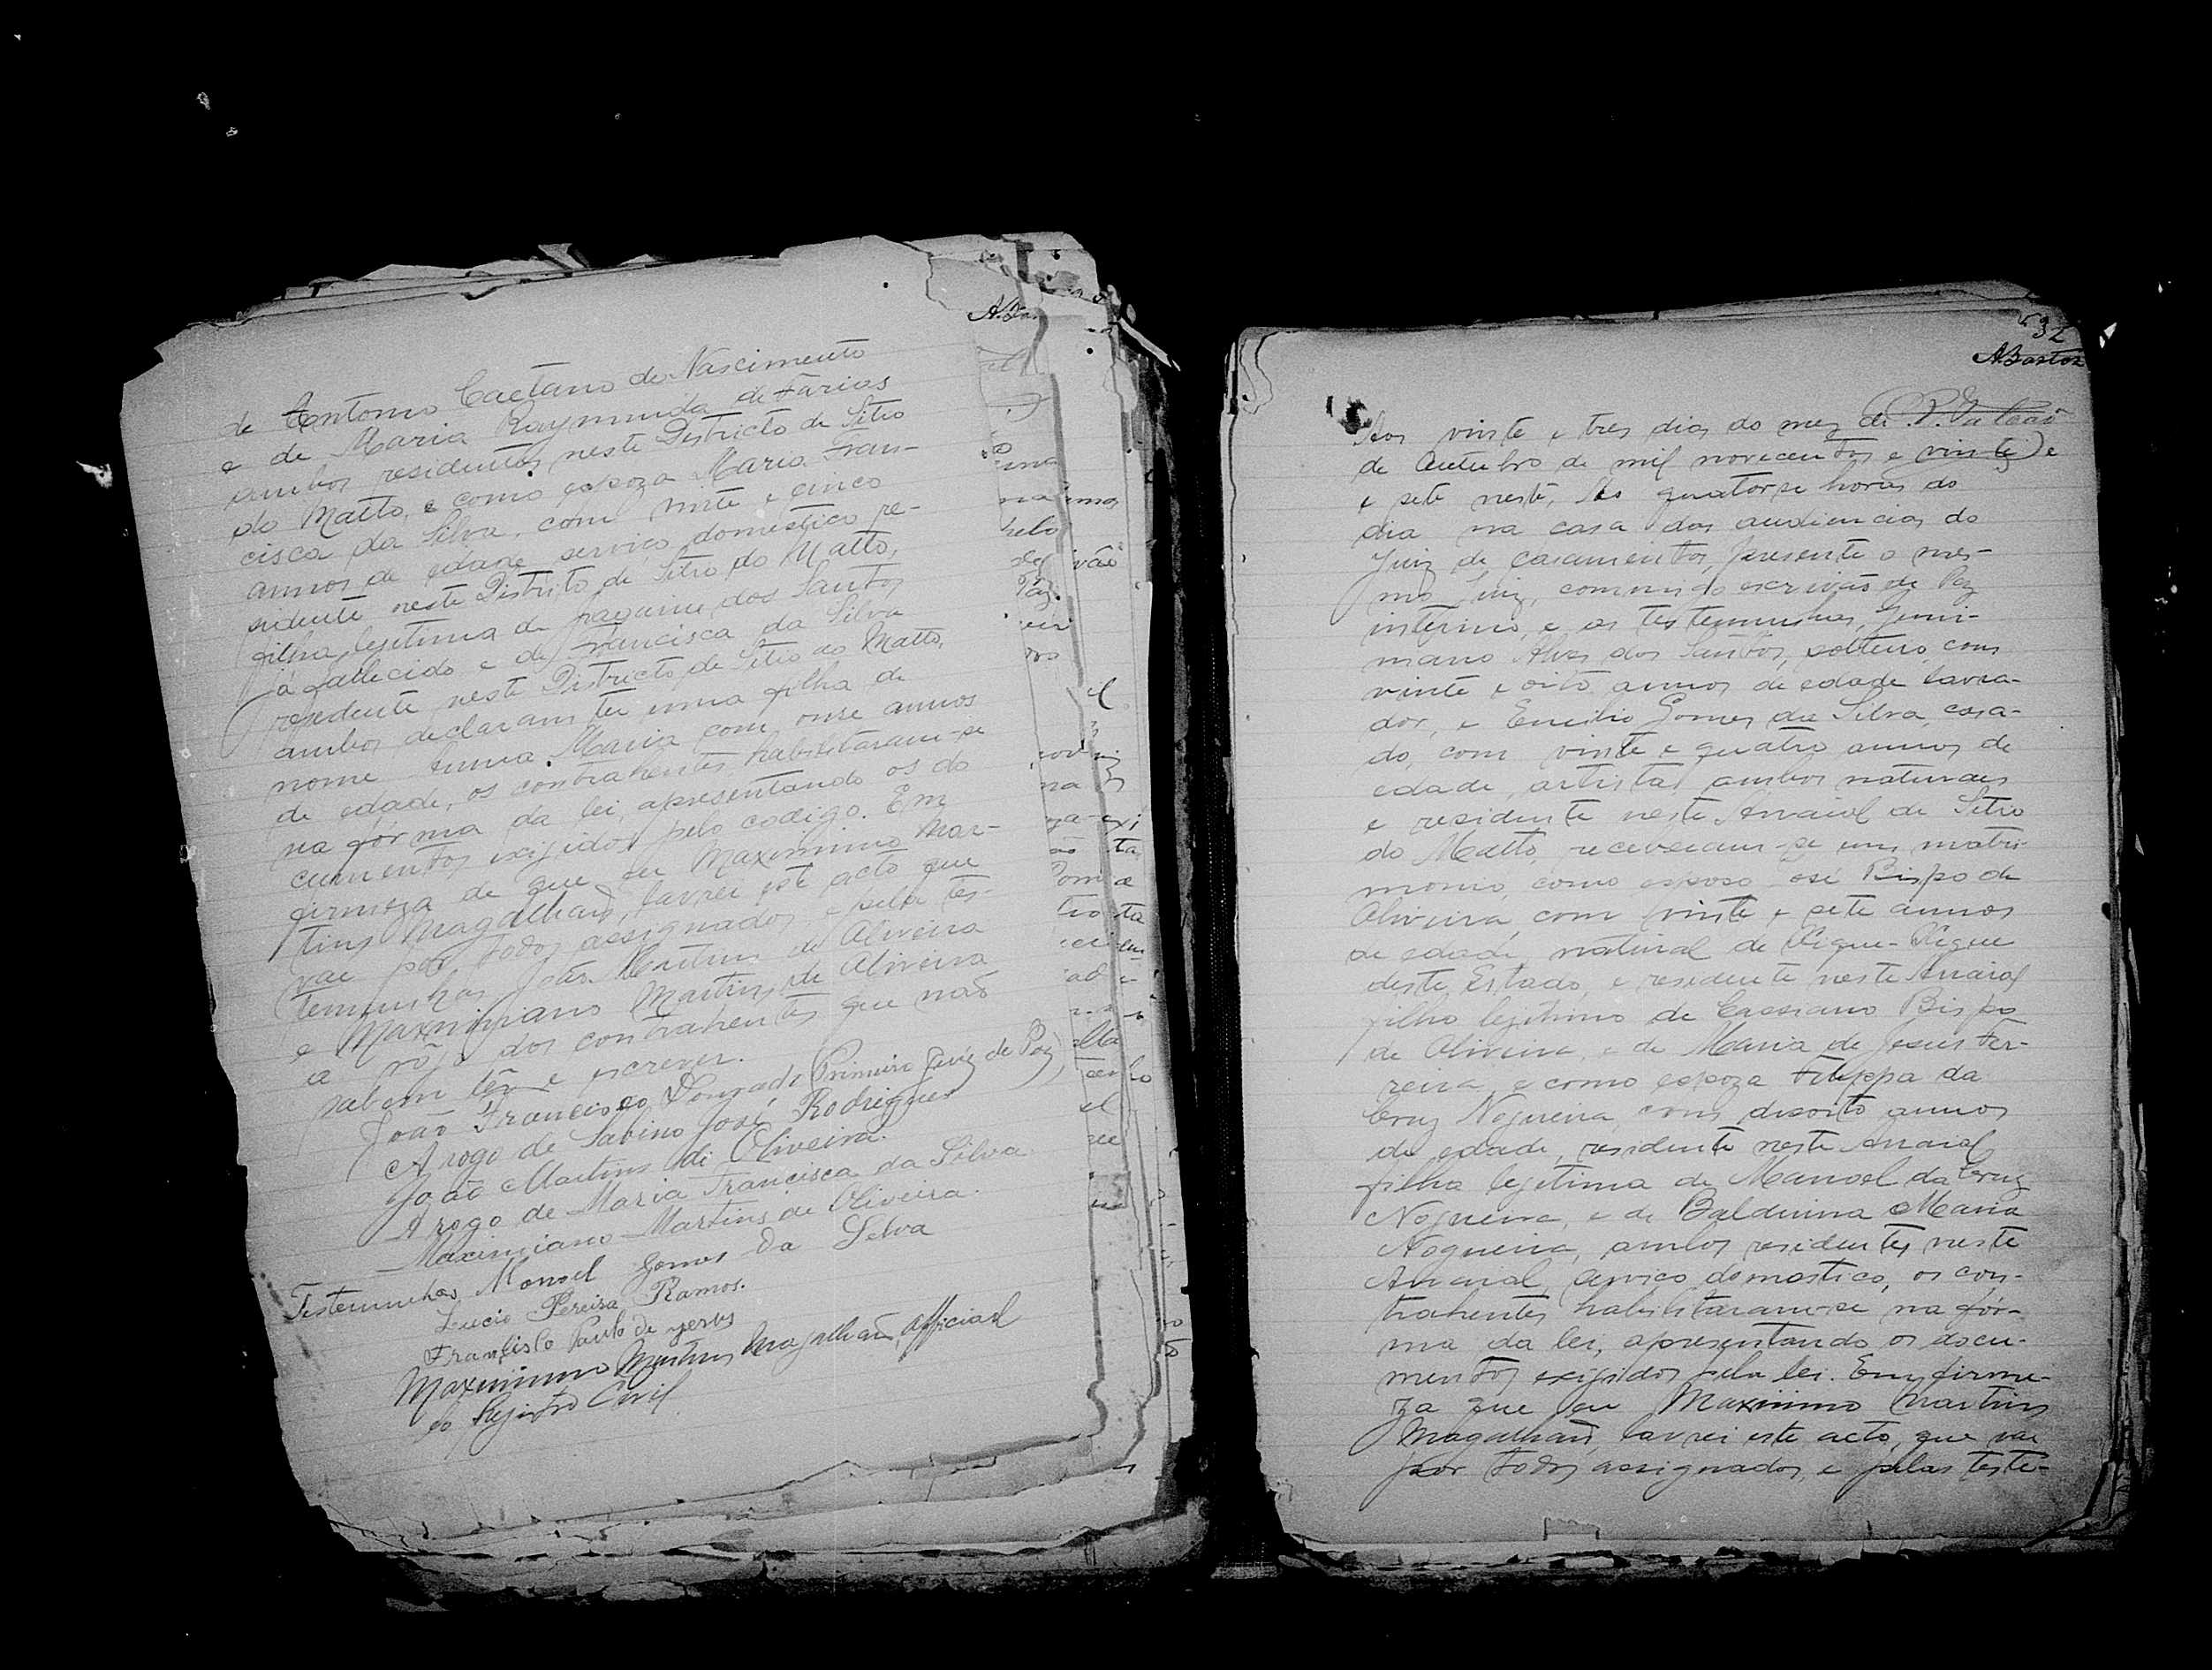 de Antonio Caetano do Nascimento
e de Maria Raymunda de Farias
ambos residentes neste Districto de Sitio
do Matto, e como espoza Maria Fran-
cisca da Silva, com vinte e cinco
annos de edade serviço domestico re-
sidente neste Distrito de Sitio do Matto,
filha legitima de dos Santos
já fallecido e de Francisca da Silva
resedente neste Districto de Sitio do Matto,
ambos declaram ter uma filha de
nome Anna Maria com onse annos
de edade, os contrahentes habilitaram-se
na fórma da lei, apresentando os do
cumentos exijidos pelo codigo. Em
firmeza de que eu Maximino Mar-
tins Magalhães, lavrei este acto que
vae por todos assignados e pelas tes-
temunhas João Martins de Oliveira
e Maximiano Martins de Oliveira
a rôgo dos contrahentes que não
sabem lêr e escrever.
João Francisco Dourado (Primeiro Juiz de Paz)
A rogo de Sabino José Rodrigues
João Martins de Oliveira.
A rogo de Maria Francisca da Silva
Maximiano Martins de Oliveira.
Testemunhas Manoel Gomes da Silva
Lucio Pereira Ramos.
Francisco Paulo de Jesus
Maximino Martins Magalhães, official
do Registro Civil
32
ABastos
Aos vinte e tres dias do mez de
de Outubro de mil novecentos e vinte) e
e sete neste, Ás quatorse horas do
dia na casa das audiencias do
Juiz de casamentos, presente o mes-
mo Juiz, commigo escrivão de Paz
interino, e as testemunhas, Gemi-
niano Alves dos Santos, solteiro, com
vinte e oito annos de edade lavra-
dor, e Emilio Gomes da Silva, casa-
do, com vinte e quatro annos de
edade, artista, ambos naturaes
e residente neste Arraial de Sitio
do Matto, receberam-se em matri-
monio, como esposo José Bispo de
Oliveira, com vinte e sete annos
de edade, natural de Xique-Xique
deste Estado, e residente neste Arraial
filho legitimo de Cassiano Bispo
de Oliveira, e de Maria de Jesus Fer-
reira, e como espoza Filippa da
Cruz Nogueira, com desoito annos
de edade, residente neste Arraial
filha legitima de Manoel da Cruz
Nogueira, e de Balduina Maria
Nogueira, ambos residentes neste
Arraial, serviço domestico, os con-
trahentes habilitaram-se na fór-
ma da lei, apresentando os docu-
mentos exijidos pela lei. Em firme-
za que eu Maximino Martins
Magalhães, lavrei este acto, que vae
por todos assignados, e pelas teste-